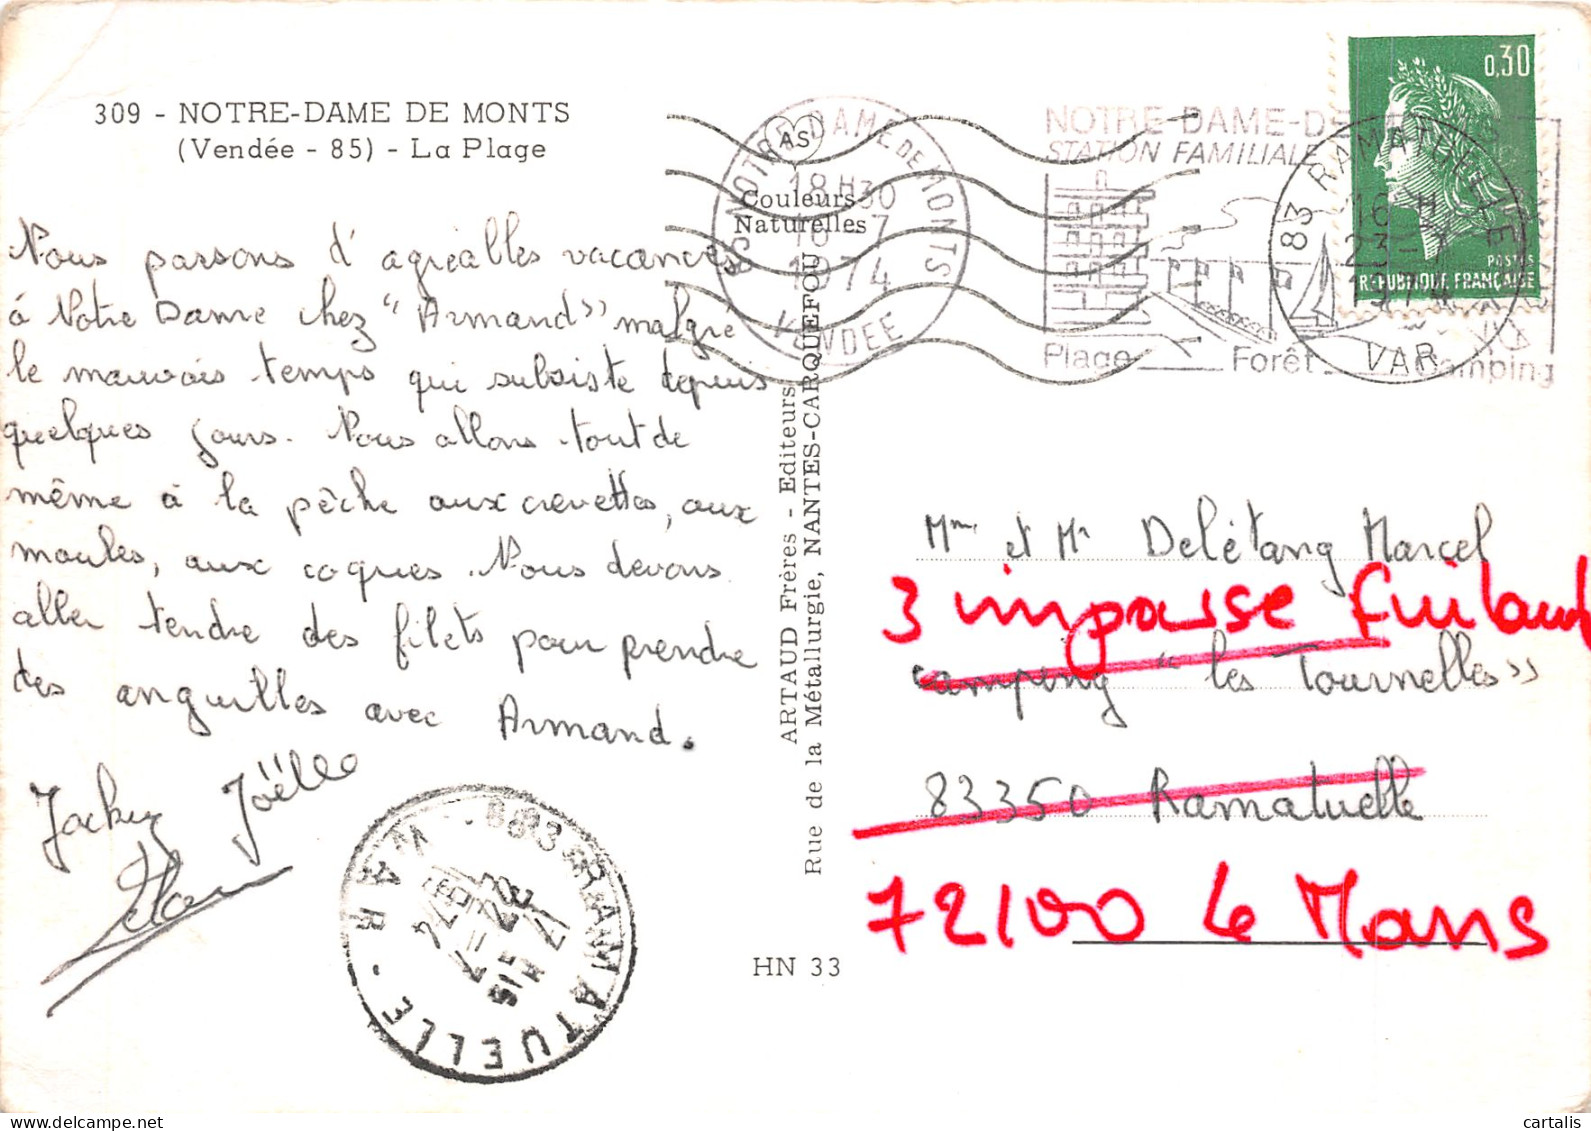 309 - NOTRE-DAME DE MONTS
(Vendée - 85) - La Plage
Nous passons d'agréables vacances
à Notre Dame chez "Armand" malgré
le mauvais temps qui subsiste depuis
quelques jours. Nous allons tout de
même à la pêche aux crevettes, aux
moules, aux coques. Nous devons
aller tendre des filets pour prendre
des anguilles avec Armand.
Jacky Joëlle
AS
Couleurs
Naturelles
ARTAUD Frères - Editeurs
Rue de la Métallurgie, NANTES-CARQUEFOU
HN 33
85 NOTRE DAME DE MONTS
18 H 30
16 - 7
1974
VENDEE
NOTRE-DAME-DE
STATION FAMILIALE
Plage Forêt Camping
83 RAMATUELLE
16 H
23 - 7
1974
VAR
0,30
POSTES
REPUBLIQUE FRANÇAISE
Mme et Mr Delétang Marcel
3 impasse
camping "les Tournelles"
83350 Ramatuelle
72100 Le Mans
83 RAMATUELLE
VAR
cartalis